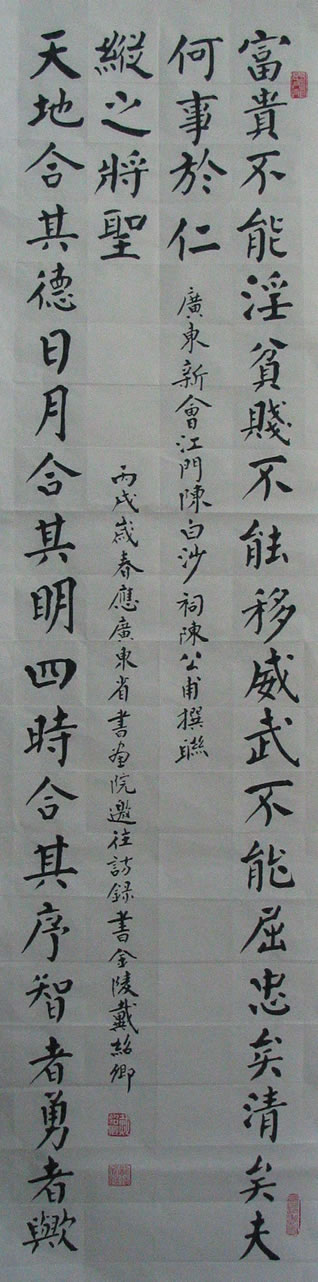 富貴不能淫貧賤不能移威武不能屈忠矣清矣夫
何事於仁
廣東新會江門陳白沙祠陳公甫撰聯
天地合其德日月合其明四時合其序智者勇者歟
縱之將聖
丙戌歲春應廣東省書画院邀往訪錄書金陵戴紹卿